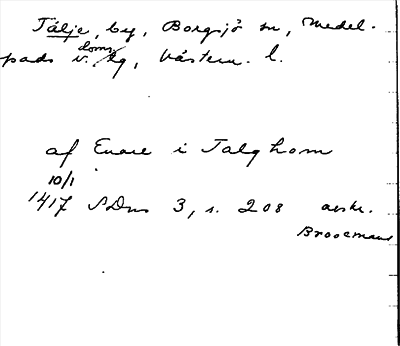 Tälje, by, Borgsjö sn, Medel-
pads v. doms tg, Västern. l.
af Enare i Talghom
10/1
1417 SDns 3, s. 208 avskr.
Broocmans